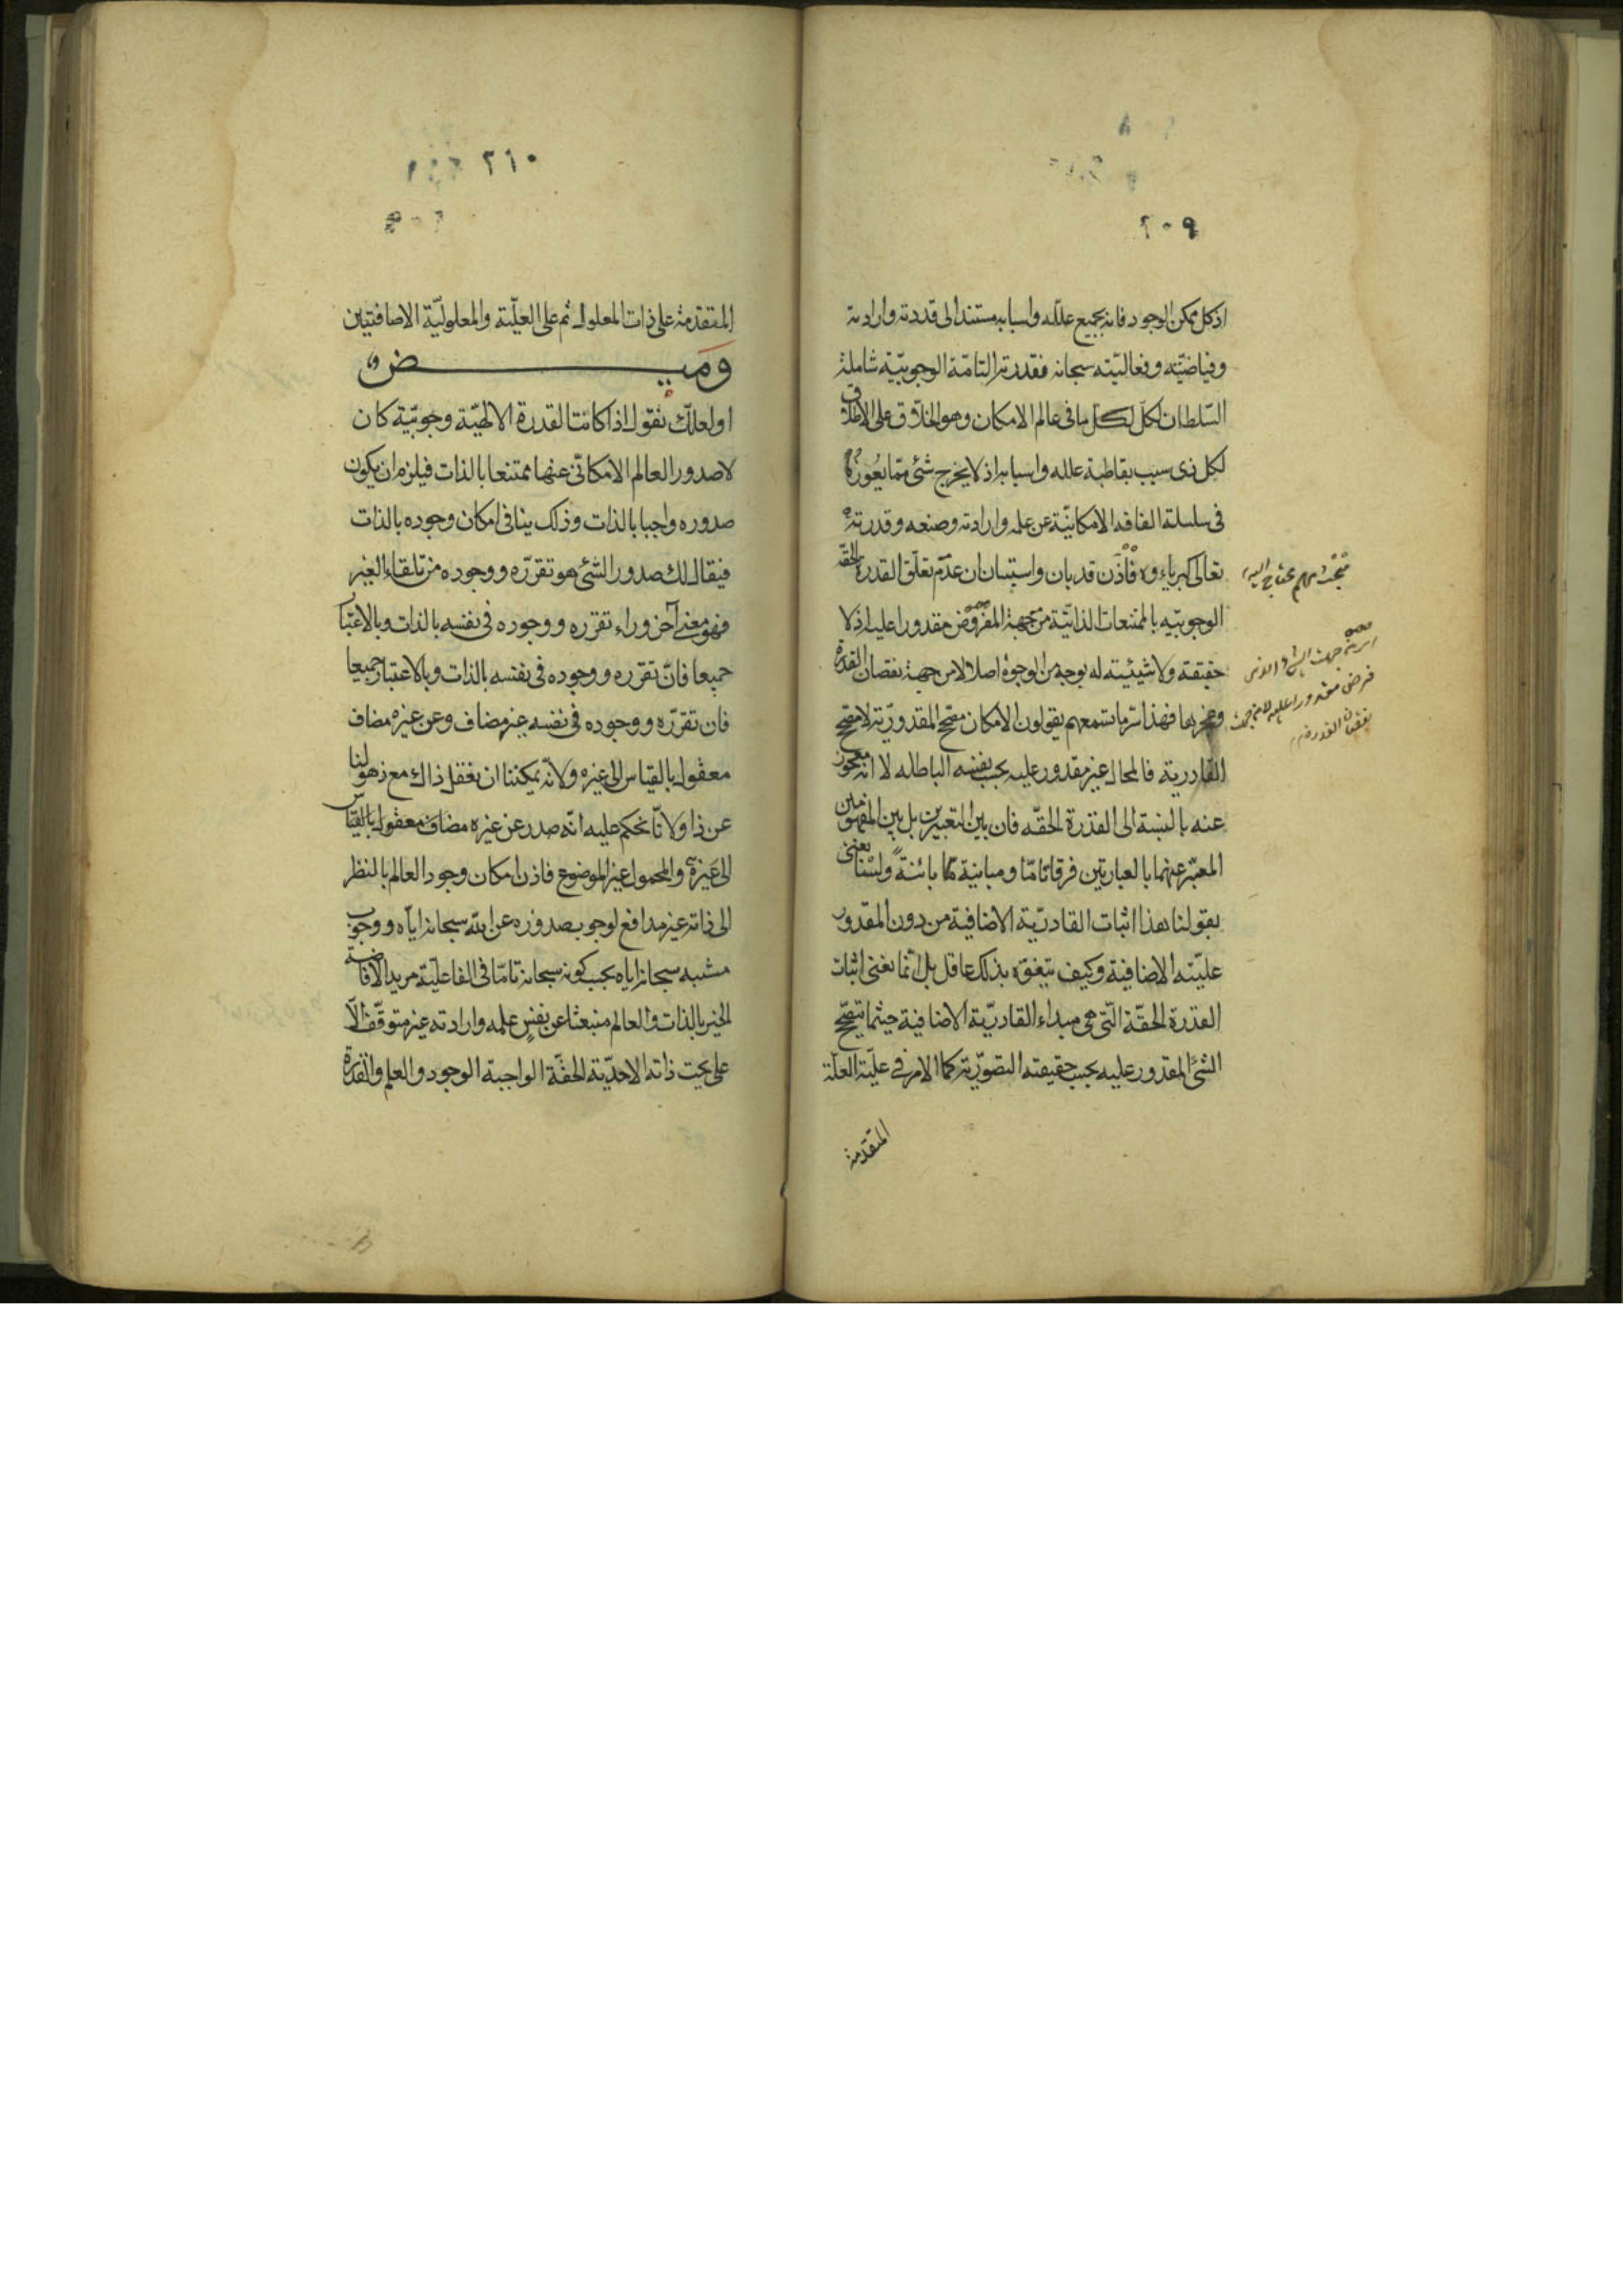 ٢٠٩
اذ كل ممكن الوجود فانه بجميع علله واسبابه مستند الى قدرته وارادته
وفياضيّته وفعاليّته سبحانه فقدرته التامّة الوجوبيّة شاملة
السّلطان لكلّ لكلّ ما فى عالم الامكان وهو الخلّاق على الاطلاق
لكل ذى سبب بقاطبة علله واسبابه اذ لا يخرج شئ ممّا يعوزه
فى سلسلة الفاقة الامكانيّة عن علمه وارادته وصنعه وقدرته
تعالى كبرياؤه فاذن قد بان واستبان ان عدم تعلّق القدرة الحقّة
الوجوبيّه بالممتنعات الذاتيّة من جهة المفروض مقدورا عليه اذ لا
حقيقة ولا شيئيته له بوجه من الوجوه اصلا لا من جهة نقصان القدرة
وعجزها فهذا سرّ ما تسمعهم يقولون الامكان مصحّح المقدوريّة لا مصحّح
القادرية فالمحال غير مقدور عليه بحسب نفسه الباطله لا انه معجوز
عنه بالنسبة الى القدرة الحقّه فان بين التعبيرين بل بين المفهومين
المعبّر عنهما بالعبارتين فرقانا مّا ومباينة مّا بائنةً ولسنا نعنى
بقولنا هذا اثبات القادريّة الاضافية من دون المقدور
عليّته الاضافية وكيف يتفوّه بذلك عاقل بل انّما نعنى اثبات
القدرة الحقّة الّتى هى مبداء القادريّة الاضافية حيثما تصحّح
الشئ المقدور عليه بحسب حقيقته التصوّرية كما الامر فى عليّة العلّة
المتقدمة
٢١٠
المتقدمة على ذات المعلول ثم على العليّة والمعلوليّة الاضافتين
ومـيـض
او لعلّك تقول اذا كانت القدرة الالهيّة وجوبيّة كان
لا صدور العالم الامكانّى عنها ممتنعا بالذات فيلزم ان يكون
صدوره واجبا بالذات وذلك ينافى امكان وجوده بالذات
فيقال لك صدور الشئ هو تقرّره ووجوده من تلقاء الغير
فهو معنى آخر وراء تقرره ووجوده فى نفسه بالذات وبالاعتبار
جميعا فانّ تقرره ووجوده فى نفسه بالذات وبالاعتبار جميعا
فان تقرّره ووجوده فى نفسه غير مضاف وعن غيره مضاف
معقول بالقياس الى غيره ولانّه يمكننا ان نعقل ذاك مع ذهولنا
عن ذا ولانّا نحكم عليه انّه صدر عن غيره مضاف معقول بالقياس
الى غيره والمحمول غير الموضوع فاذن امكان وجود العالم بالنظر
الى ذاته غير مدافع لوجوب صدوره عن الله سبحانه ايّاه ووجوب
سبحانه اياه بحسب كونه سبحانه تامّا فى الفاعليّة مريد الافاضة
الخير بالذات والعالم منبعثا عن نفس علمه وارادته غير متوقّف الّا
على بحت ذاته الاحديّة الحقّة الواجبة الوجود والعلم والقدرة